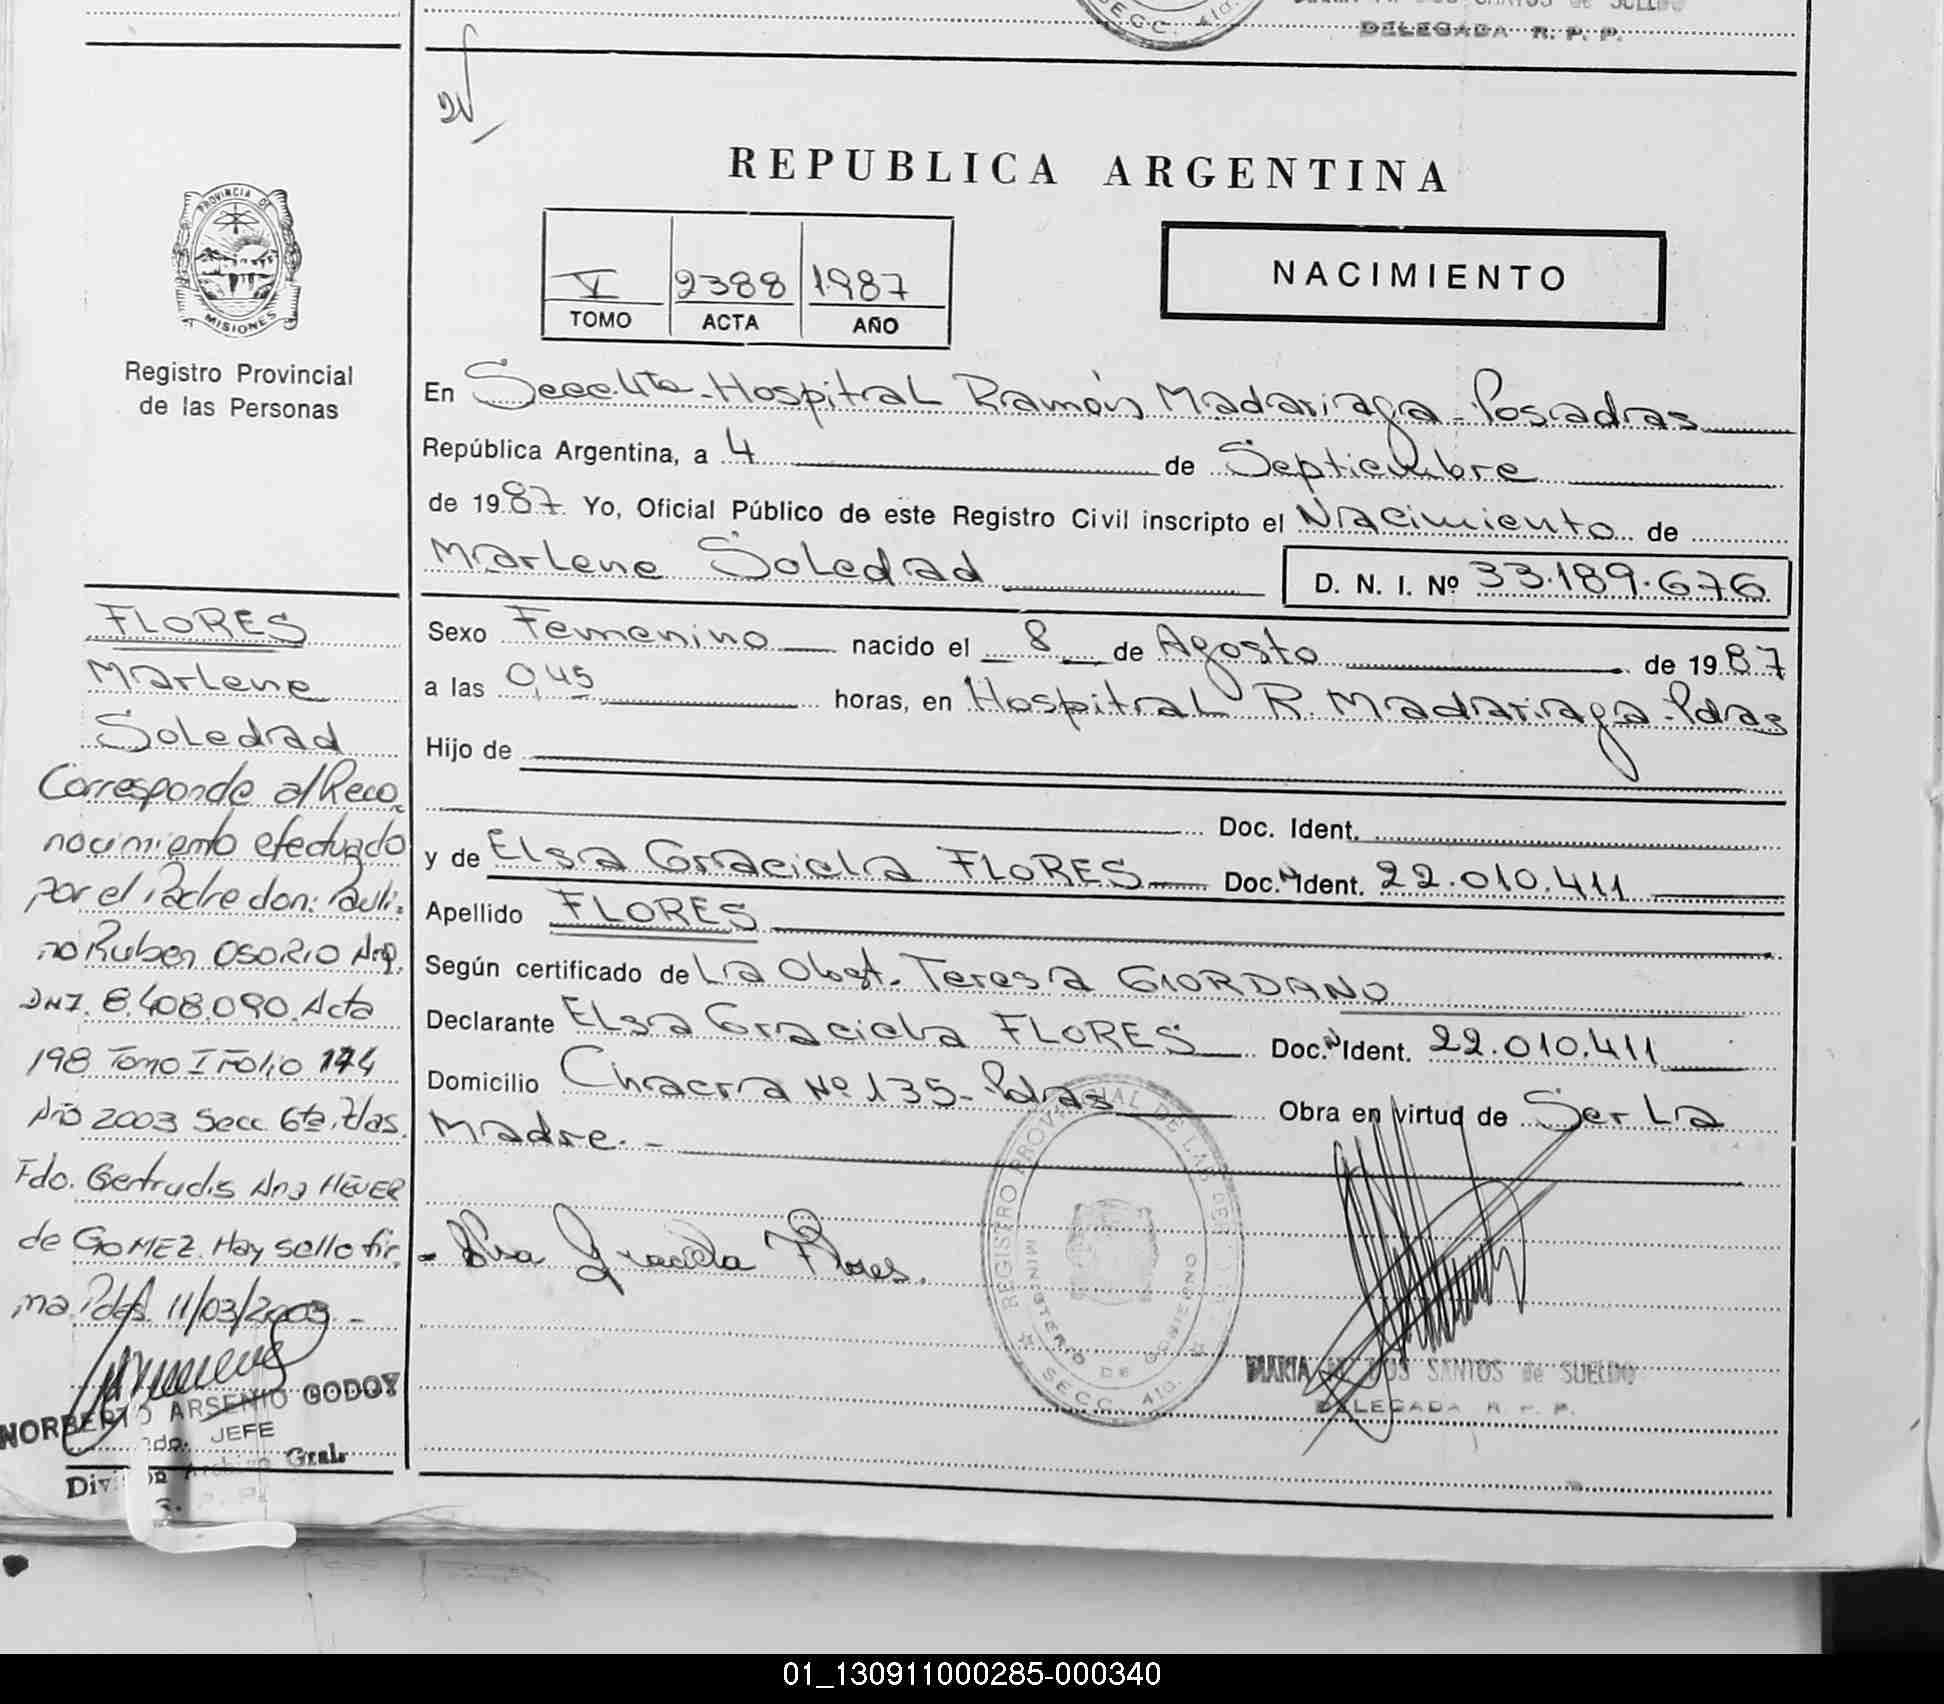 DELEGADA R. P. P.
REPUBLICA ARGENTINA
V 2388 1987
TOMO ACTA AÑO
NACIMIENTO
PROVINCIA DE
MISIONES
Registro Provincial
de las Personas
En Secc.4ta-Hospital Ramón Madariaga-Posadas
República Argentina, a 4 de Septiembre
de 1987. Yo, Oficial Público de este Registro Civil inscripto el Nacimiento de
Marlene Soledad D. N. I. Nº 33.189.676
Sexo Femenino nacido el 8 de Agosto de 1987
a las 0,45 horas, en Hospital R. Madariaga-Pdas
Hijo de
Doc. Ident.
y de Elsa Graciela FLORES Doc.N Ident. 22.010.411
Apellido FLORES
Según certificado de La Obst. Teresa GIORDANO
Declarante Elsa Graciela FLORES Doc.N Ident. 22.010.411
Domicilio Chacra Nº 135-Pdas Obra en virtud de Ser La
Madre.-
Elsa Graciela Flores.
REGISTRO PROVINCIAL DE LAS PER
MINISTERIO DE GOBIERNO
SECC. 4ta.
MARIA DOS SANTOS de SUELDO
DELEGADA R. P. P.
FLORES
Marlene
Soledad
Corresponde al Reco-
nocimiento efectuado
por el Padre don: Pauli-
no Ruben OSORIO Arg.
DNI. 8.408.090. Acta
198 Tomo I Folio 174
Año 2003 Secc. 6ta. Pdas.
Fdo. Gertrudis Ana HEUER
de GOMEZ. Hay sello fir-
ma. Pdas. 11/03/2003.-
NORBERTO ARSENIO GODOY
JEFE
Archivo Gral.
01_130911000285-000340